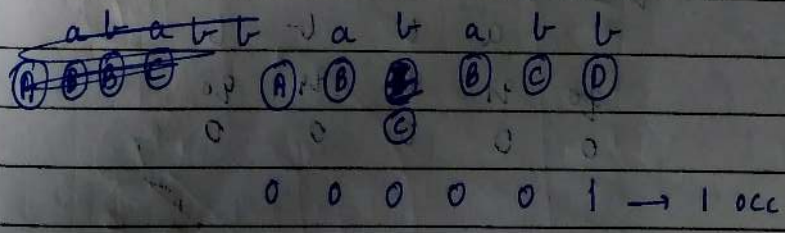 a b a b b a b a b b
A B B C A B B C D
C
0 0 0 0 0 1 → 1 occ